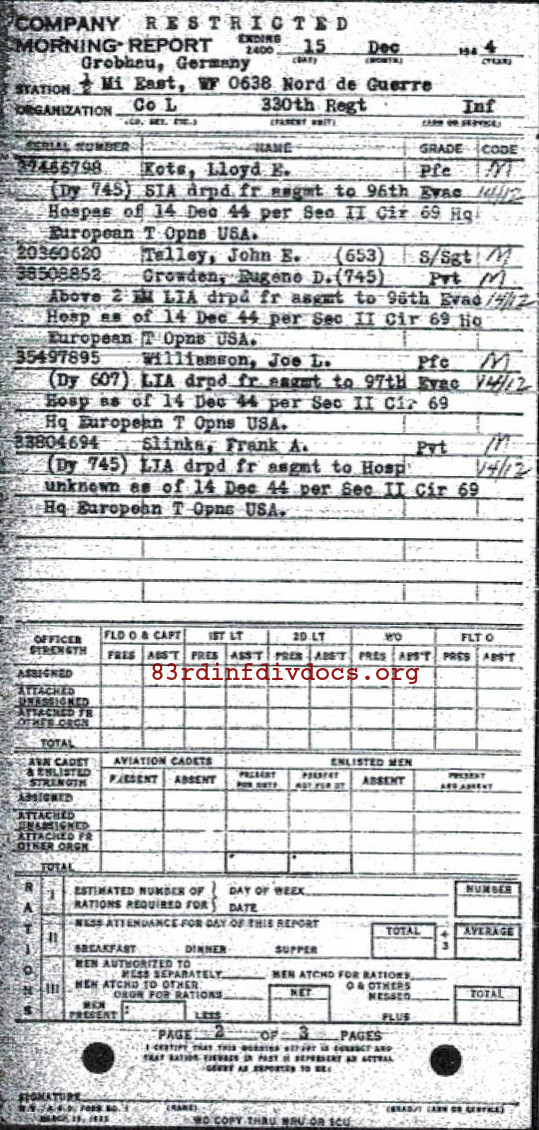 COMPANY RESTRICTED
MORNING REPORT ENDING 2400 15 Dec 194 4
(DAY) (MONTH) (YEAR)
Grobhau, Germany
STATION ½ Mi East, WF 0638 Nord de Guerre
ORGANIZATION Co L 330th Regt Inf
(CO. DET. ETC.) (PARENT UNIT) (ARM OR SERVICE)
SERIAL NUMBER NAME GRADE CODE
37466798 Kots, Lloyd E. Pfc M
(Dy 745) SIA drpd fr asgmt to 96th Evac 14/12
Hospas of 14 Dec 44 per Sec II Cir 69 Hq
European T Opns USA.
20360620 Talley, John E. (653) S/Sgt M
38508852 Crowden, Eugene D.(745) Pvt M
Above 2 EM LIA drpd fr asgmt to 96th Evac 14/12
Hosp as of 14 Dec 44 per Sec II Cir 69 Hq
European T Opns USA.
35497895 Williamson, Joe L. Pfc M
(Dy 607) LIA drpd fr asgmt to 97th Evac 14/12
Hosp as of 14 Dec 44 per Sec II Cir 69
Hq European T Opns USA.
33804694 Slinka, Frank A. Pvt M
(Dy 745) LIA drpd fr asgmt to Hosp 14/12
unknown as of 14 Dec 44 per Sec II Cir 69
Hq European T Opns USA.
OFFICER STRENGTH FLD O & CAPT 1ST LT 2D LT WO FLT O
PRES ABS'T PRES ABS'T PRES ABS'T PRES ABS'T PRES ABS'T
ASSIGNED
83rdinfdivdocs.org
ATTACHED UNASSIGNED
ATTACHED FR OTHER ORGN
TOTAL
AVN CADET & ENLISTED STRENGTH AVIATION CADETS ENLISTED MEN
PRESENT ABSENT PRESENT FOR DUTY PRESENT NOT FOR DY ABSENT PRESENT AND ABSENT
ASSIGNED
ATTACHED UNASSIGNED
ATTACHED FR OTHER ORGN
TOTAL
RATIONS
I ESTIMATED NUMBER OF RATIONS REQUIRED FOR } DAY OF WEEK DATE NUMBER
II MESS ATTENDANCE FOR DAY OF THIS REPORT TOTAL ÷ 3 AVERAGE
BREAKFAST DINNER SUPPER
III MEN AUTHORIZED TO MESS SEPARATELY MEN ATCHD FOR RATIONS
MEN ATCHD TO OTHER ORGN FOR RATIONS NET O & OTHERS MESSED TOTAL
MEN PRESENT LESS PLUS
PAGE 2 OF 3 PAGES
I CERTIFY THAT THIS MORNING REPORT IS CORRECT AND
SIGNATURE
(NAME) (GRADE) (ARM OR SERVICE)
W.D., A.G.O. FORM NO. 1
NO COPY THRU MRU OR SCU